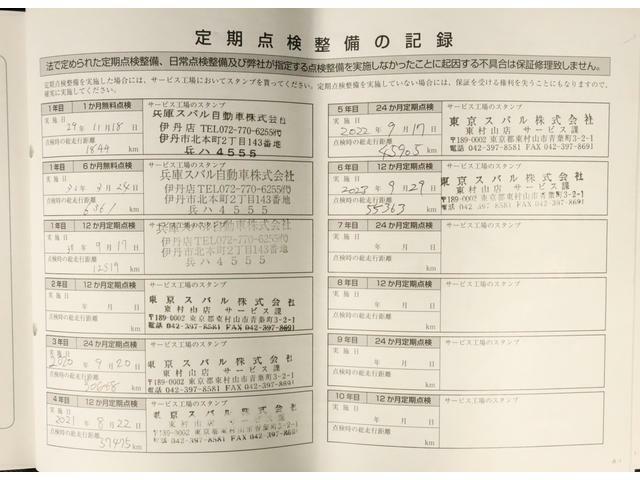 定期点検整備の記録
法で定められた定期点検整備、日常点検整備及び弊社が指定する点検整備を実施しなかったことに起因する不具合は保証修理致しません。
定期点検整備を実施した場合には、サービス工場においてスタンプを貰ってください。定期点検整備を実施していない場合には、保証を受ける権利を失うこともなりますので、
確実に実施してください。
1年目 1か月無料点検 サービス工場のスタンプ
実施日
29年 11月18日
点検時の総走行距離
1844 km
兵庫スバル自動車株式会社
伊丹店 TEL072-770-6255㈹
伊丹市北本町2丁目143番地
兵ハ4555
1年目 6か月無料点検 サービス工場のスタンプ
実施日
年 月24日
点検時の総走行距離
km
兵庫スバル自動車株式会社
伊丹店TEL072-770-6255㈹
伊丹市北本町2丁目143番地
兵ハ4555
1年目 12か月定期点検 サービス工場のスタンプ
実施日
年 9月17日
点検時の総走行距離
12519 km
兵庫スバル自動車株式会社
伊丹店TEL072-770-6255㈹
伊丹市北本町2丁目143番地
兵ハ4555
2年目 24か月定期点検 サービス工場のスタンプ
実施日
年 月 日
点検時の総走行距離
km
東京スバル株式会社
東村山店 サービス課
〒189-0002 東京都東村山市青葉町3-2-1
電話 042-397-8581 FAX 042-397-8691
3年目 12か月定期点検 サービス工場のスタンプ
実施日
2020年 9月20日
点検時の総走行距離
km
東京スバル株式会社
東村山店 サービス課
〒189-0002 東京都東村山市青葉町3-2-1
電話 042-397-8581 FAX 042-397-8691
4年目 12か月定期点検 サービス工場のスタンプ
実施日
2021年 8月22日
点検時の総走行距離
37475 km
東京スバル株式会社
東村山店 サービス課
〒189-0002 東京都東村山市青葉町3-2-1
電話 042-397-8581 FAX 042-397-8691
5年目 24か月定期点検 サービス工場のスタンプ
実施日
2022年 9月17日
点検時の総走行距離
45905 km
東京スバル株式会社
東村山店 サービス課
〒189-0002 東京都東村山市青葉町3-2-1
電話 042-397-8581 FAX 042-397-8691
6年目 12か月定期点検 サービス工場のスタンプ
実施日
2023年 9月29日
点検時の総走行距離
55363 km
東京スバル株式会社
東村山店 サービス課
〒189-0002 東京都東村山市青葉町3-2-1
電話 042-397-8581 FAX 042-397-8691
7年目 24か月定期点検 サービス工場のスタンプ
実施日
年 月 日
点検時の総走行距離
km
8年目 12か月定期点検 サービス工場のスタンプ
実施日
年 月 日
点検時の総走行距離
km
9年目 24か月定期点検 サービス工場のスタンプ
実施日
年 月 日
点検時の総走行距離
km
10年目 12か月定期点検 サービス工場のスタンプ
実施日
年 月 日
点検時の総走行距離
km